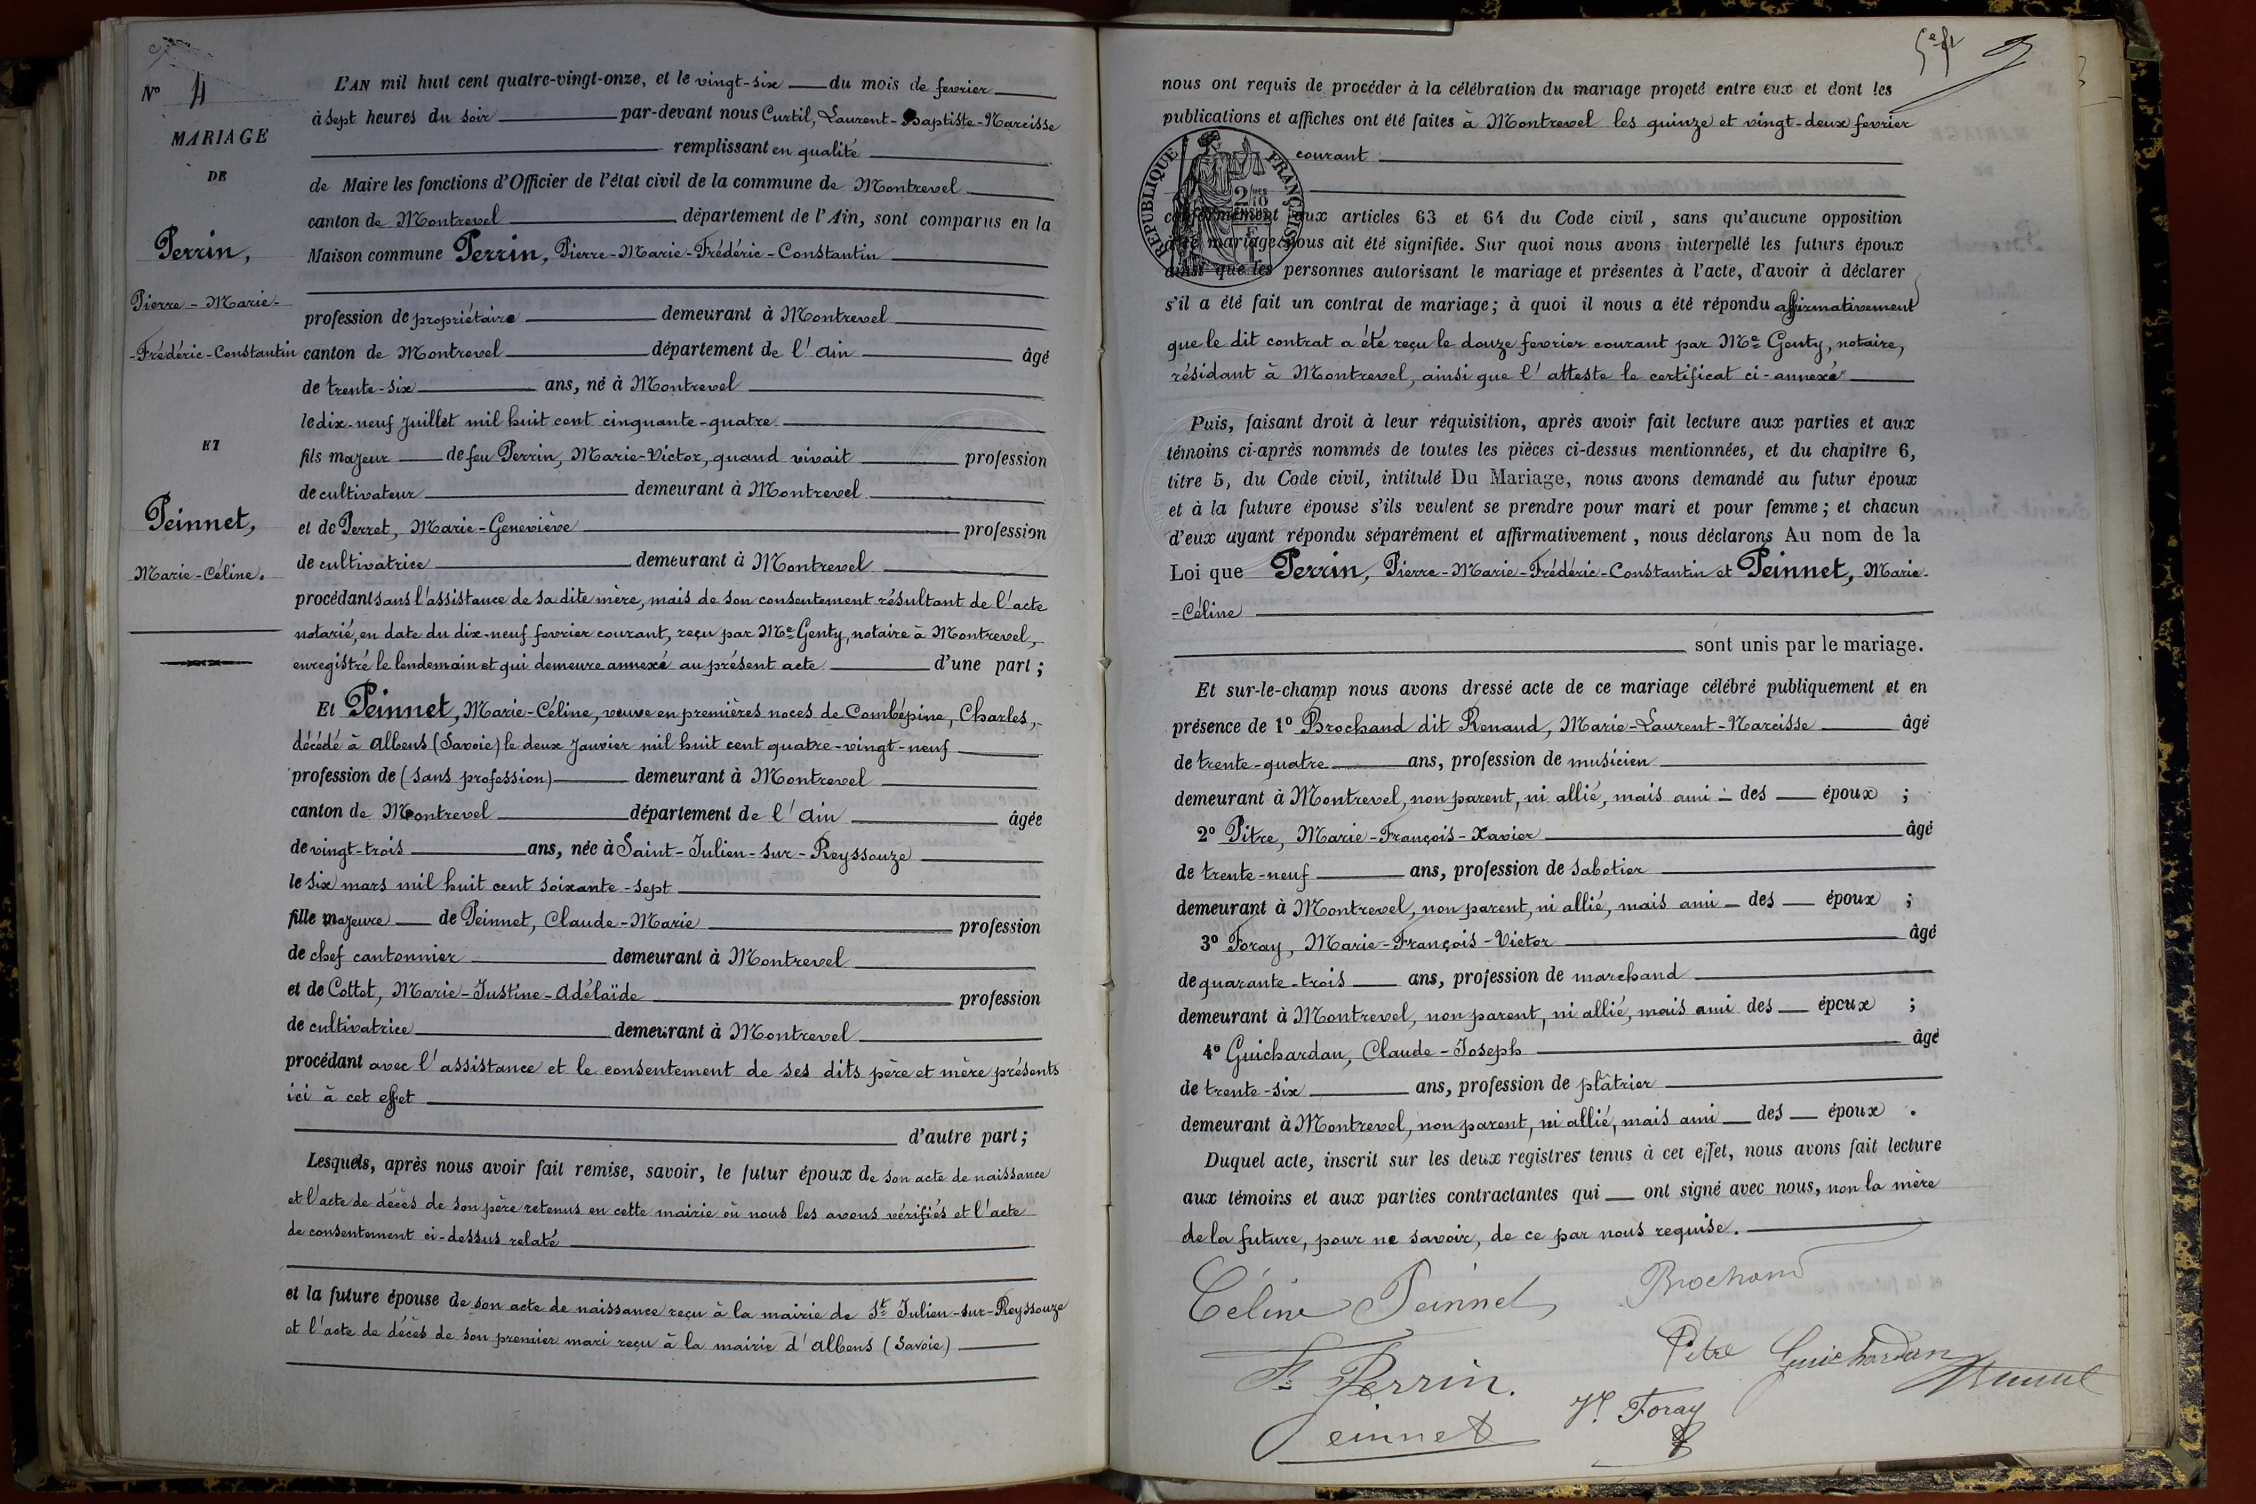 N° 4
MARIAGE
DE
Perrin,
Pierre-Marie-
-Frédéric-Constantin
ET
Peinnet,
Marie-Céline.
L'AN mil huit cent quatre-vingt-onze, et le vingt-six du mois de fevrier
à sept heures du soir par-devant nous Curtil, Laurent-Baptiste-Narcisse
remplissant en qualité
de Maire les fonctions d'Officier de l'état civil de la commune de Montrevel
canton de Montrevel département de l'Ain, sont comparus en la
Maison commune Perrin, Pierre-Marie-Frédéric-Constantin
profession de propriétaire demeurant à Montrevel
canton de Montrevel département de l'Ain âgé
de trente-six ans, né à Montrevel
le dix-neuf Juillet mil huit cent cinquante-quatre
fils majeur de feu Perrin, Marie-Victor, quand vivait profession
de cultivateur demeurant à Montrevel
et de Perret, Marie-Geneviève profession
de cultivatrice demeurant à Montrevel
procédant sans l'assistance de sa dite mère, mais de son consentement résultant de l'acte
notarié, en date du dix-neuf fevrier courant, reçu par Me Genty, notaire à Montrevel,
enregistré le lendemain et qui demeure annexé au présent acte d'une part;
Et Peinnet, Marie-Céline, veuve en premières noces de Combépine, Charles,
décédé à Albens (Savoie) le deux Janvier mil huit cent quatre-vingt-neuf
profession de (sans profession) demeurant à Montrevel
canton de Montrevel département de l'Ain âgée
de vingt-trois ans, née à Saint-Julien-sur-Reyssouze
le six mars mil huit cent soixante-sept
fille majeure de Peinnet, Claude-Marie profession
de chef cantonnier demeurant à Montrevel
et de Cottet, Marie-Justine-Adélaïde profession
de cultivatrice demeurant à Montrevel
procédant avec l'assistance et le consentement de ses dits père et mère présents
ici à cet effet
d'autre part;
Lesquels, après nous avoir fait remise, savoir, le futur époux de son acte de naissance
et l'acte de décès de son père retenus en cette mairie où nous les avons vérifiés et l'acte
de consentement ci-dessus relaté
et la future épouse de son acte de naissance reçu à la mairie de St Julien-sur-Reyssouze
et l'acte de décès de son premier mari reçu à la mairie d'Albens (Savoie)
nous ont requis de procéder à la célébration du mariage projeté entre eux et dont les
publications et affiches ont été faites à Montrevel les quinze et vingt-deux fevrier
courant
RÉPUBLIQUE FRANÇAISE
2/10
EN SUS
conformément aux articles 63 et 64 du Code civil, sans qu'aucune opposition
à ce mariage nous ait été signifiée. Sur quoi nous avons interpellé les futurs époux
ainsi que les personnes autorisant le mariage et présentes à l'acte, d'avoir à déclarer
s'il a été fait un contrat de mariage; à quoi il nous a été répondu affirmativement
que le dit contrat a été reçu le douze fevrier courant par Me Genty, notaire,
résidant à Montrevel, ainsi que l'atteste le certificat ci-annexé
Puis, faisant droit à leur réquisition, après avoir fait lecture aux parties et aux
témoins ci-après nommés de toutes les pièces ci-dessus mentionnées, et du chapitre 6,
titre 5, du Code civil, intitulé Du Mariage, nous avons demandé au futur époux
et à la future épouse s'ils veulent se prendre pour mari et pour femme; et chacun
d'eux ayant répondu séparément et affirmativement, nous déclarons Au nom de la
Loi que Perrin, Pierre-Marie-Frédéric-Constantin et Peinnet, Marie-
-Céline
sont unis par le mariage.
Et sur-le-champ nous avons dressé acte de ce mariage célébré publiquement et en
présence de 1° Brochand dit Renaud, Marie-Laurent-Narcisse âgé
de trente-quatre ans, profession de musicien
demeurant à Montrevel, non parent, ni allié, mais ami des époux ;
2° Pitre, Marie-François-Xavier âgé
de trente-neuf ans, profession de sabotier
demeurant à Montrevel, non parent, ni allié, mais ami des époux ;
3° Foray, Marie-François-Victor âgé
de quarante-trois ans, profession de marchand
demeurant à Montrevel, non parent, ni allié, mais ami des époux ;
4° Guichardan, Claude-Joseph âgé
de trente-six ans, profession de plâtrier
demeurant à Montrevel, non parent, ni allié, mais ami des époux .
Duquel acte, inscrit sur les deux registres tenus à cet effet, nous avons fait lecture
aux témoins et aux parties contractantes qui ont signé avec nous, non la mère
de la future, pour ne savoir, de ce par nous requise.
Céline Peinnet Brochand
Pitre Guichardan
F. Perrin.
Vr Foray
Peinnet